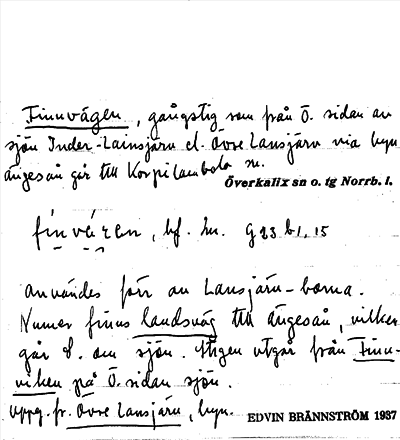 Finnvägen, gångstig som från Ö. sidan av
sjön Inder-Lainsjärv el. Övre Lansjärv via byn
Ängesån går till Korpilombolo sn.
Överkalix sn o. tg Norrb. l.
bf. G 23 b 1, 15
användes förr av Lansjärv-borna.
Numer finns landsväg till Ängesån, vilken
går S. om sjön. Stigen utgår från Finn-
viken på Ö. sidan sjön.
Uppg. fr. Övre Lansjärv, byn.
EDVIN BRÄNNSTRÖM 1937